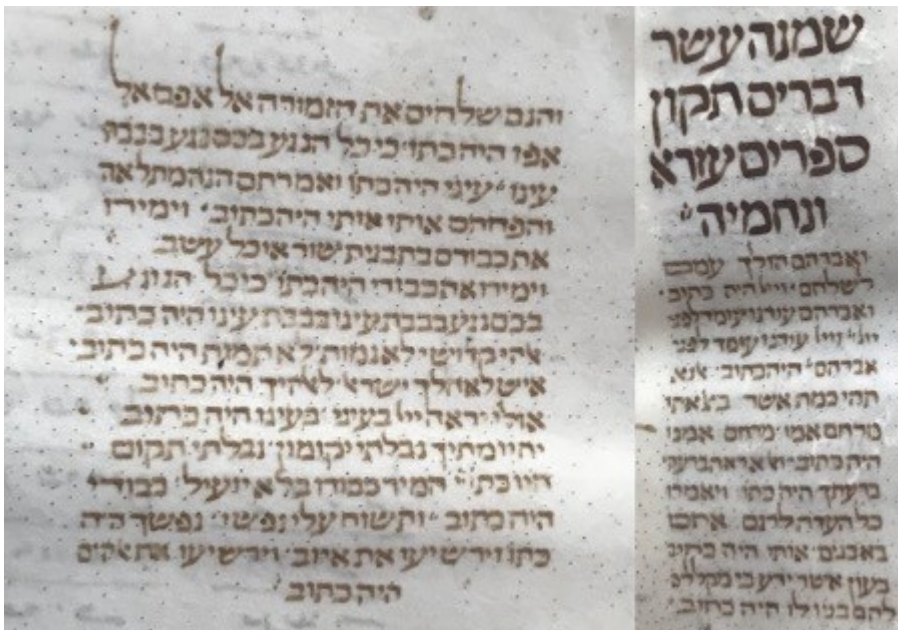 שמנה עשר
דברים תקון
ספרים עזרא
ונחמיה
ואברהם הולך עמהם
לשלחם ויי היה כתוב
ואברהם עודנו עומד לפני
יי ויי עודנו עומד לפני
אברהם היה כתוב אנא
תהי כמה אשר בצאתו
מרחם אמו מרחם אמנו
היה כתוב ואל אראה ברעתי
ברעתך היה כתו ויאמרו
כל העדה לרגם אתכם
באבנים אותו היה כתוב
בעון אשר ידע כי מקללים
להם בניו לו היה כתוב
והנם שלחים את הזמורה אל אפם אל
אפי היה כתו כי כל הנגע בכם נגע בבבת
עינו עיני היה כתו ואמרתם הנה מתלאה
והפחתם אותו אותי היה כתוב וימירו
את כבודם בתבנית שור אוכל עשב
וימירו את כבודי היה כתו כי כל הנוגע
בכם נגע בבבת עינו בבבת עיני היה כתוב
אלהי קדושי לא נמות לא תמות היה כתוב
איש לאהלך ישראל לאלהיך היה כתוב
אולי יראה יי בעיני בעינו היה כתוב
יחיו מתיך נבלתי יקומון נבלתי תקום
היו כת המיר כבודו בלא יועיל כבודי
היה כתוב ותשוח עלי נפשי נפשך היה
כתו וירשיעו את איוב וירשיעו את אלהים
היה כתוב